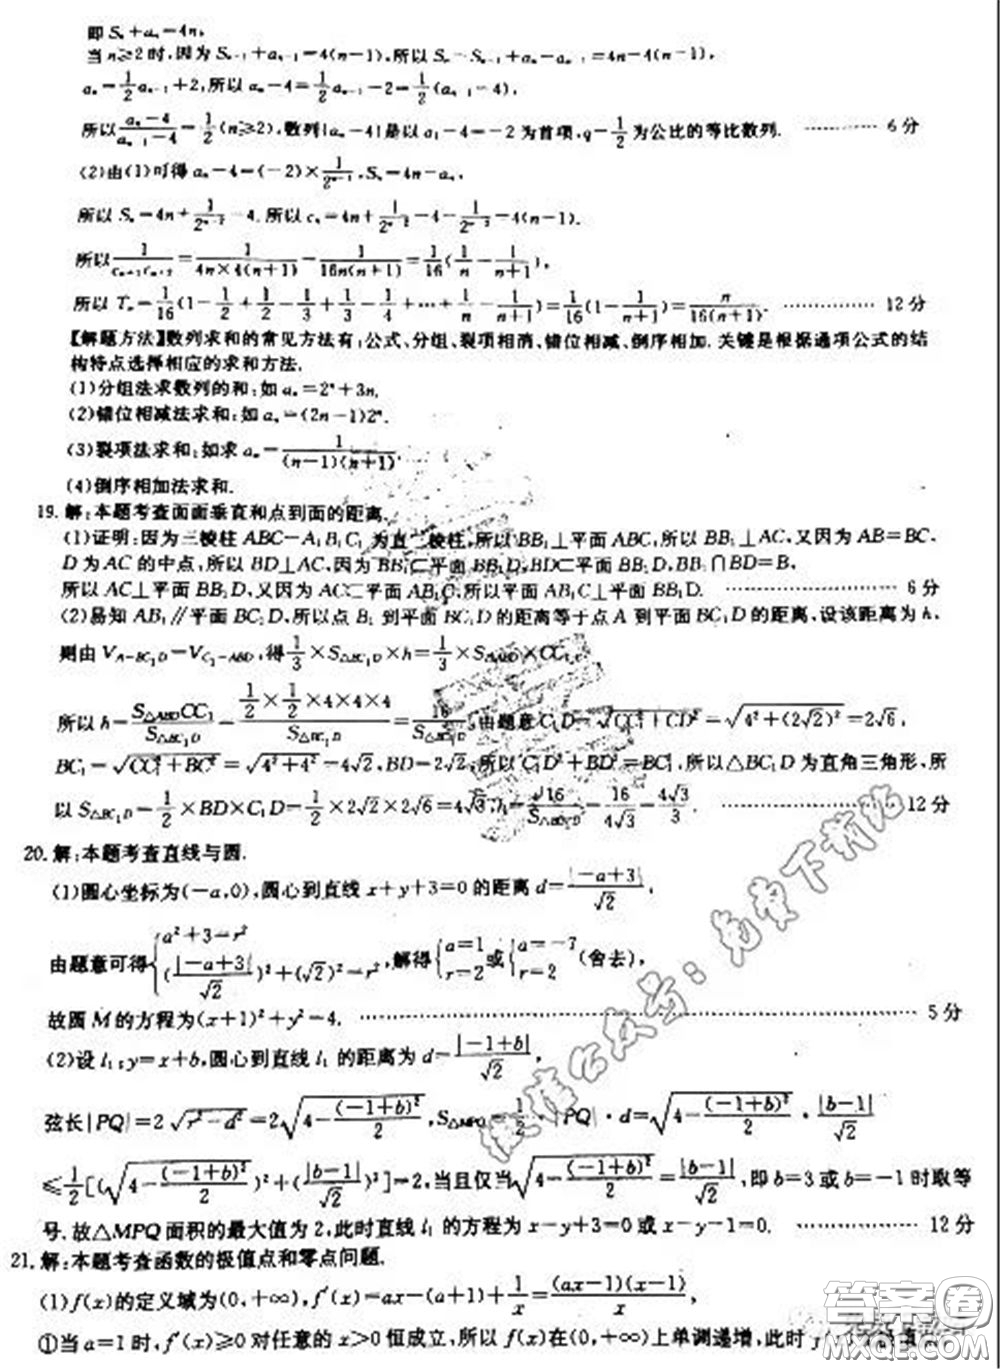 即 Sₙ+aₙ=4n,
当 n≥2 时,因为 Sₙ₋₁+aₙ₋₁=4(n-1),所以 Sₙ-Sₙ₋₁+aₙ-aₙ₋₁=4n-4(n-1),
aₙ=1/2 aₙ₋₁+2,所以 aₙ-4=1/2 aₙ₋₁-2=1/2(aₙ₋₁-4),
所以 (aₙ-4)/(aₙ₋₁-4)=1/2(n≥2),数列{aₙ-4}是以 a₁-4=-2 为首项,q=1/2 为公比的等比数列. ………… 6分
(2)由(1)可得 aₙ-4=(-2)×1/2ⁿ⁻¹,Sₙ=4n-aₙ,
所以 Sₙ=4n+1/2ⁿ⁻²-4.所以 cₙ=4n+1/2ⁿ⁻²-4-1/2ⁿ⁻²=4(n-1).
所以 1/(cₙ₊₁cₙ₊₂)=1/(4n×4(n+1))=1/(16n(n+1))=1/16(1/n-1/(n+1)),
所以 Tₙ=1/16(1-1/2+1/2-1/3+1/3-1/4+…+1/n-1/(n+1))=1/16(1-1/(n+1))=n/(16(n+1)). ………… 12分
【解题方法】数列求和的常见方法有:公式、分组、裂项相消、错位相减、倒序相加.关键是根据通项公式的结
构特点选择相应的求和方法.
(1)分组法求数列的和:如 aₙ=2ⁿ+3n.
(2)错位相减法求和:如 aₙ=(2n-1)2ⁿ.
(3)裂项法求和:如求 aₙ=1/((n-1)(n+1)).
(4)倒序相加法求和.
19.解:本题考查面面垂直和点到面的距离.
(1)证明:因为三棱柱 ABC-A₁B₁C₁ 为直三棱柱,所以 BB₁⊥平面 ABC,所以 BB₁⊥AC,又因为 AB=BC,
D 为 AC 的中点,所以 BD⊥AC,因为 BB₁⊂平面 BB₁D,BD⊂平面 BB₁D,BB₁∩BD=B,
所以 AC⊥平面 BB₁D,又因为 AC⊂平面 AB₁C,所以平面 AB₁C⊥平面 BB₁D. ………… 6分
(2)易知 AB₁∥平面 BC₁D,所以点 B₁ 到平面 BC₁D 的距离等于点 A 到平面 BC₁D 的距离,设该距离为 h,
则由 V_A-BC₁D=V_C₁-ABD,得 1/3×S△BC₁D×h=1/3×S△ABD×CC₁,
所以 h=S△ABD CC₁/S△BC₁D=(1/2×1/2×4×4×4)/S△BC₁D=16/S△BC₁D,由题意 C₁D=√(CC₁²+CD²)=√(4²+(2√2)²)=2√6,
BC₁=√(CC₁²+BC²)=√(4²+4²)=4√2,BD=2√2,所以 C₁D²+BD²=BC₁²,所以△BC₁D 为直角三角形,所
以 S△BC₁D=1/2×BD×C₁D=1/2×2√2×2√6=4√3,h=16/S△BC₁D=16/4√3=4√3/3. ………… 12分
20.解:本题考查直线与圆.
(1)圆心坐标为(-a,0),圆心到直线 x+y+3=0 的距离 d=|-a+3|/√2,
由题意可得{a²+3=r², (|-a+3|/√2)²+(√2)²=r²,解得{a=1 r=2 或{a=-7 r=2 (舍去),
故圆 M 的方程为(x+1)²+y²=4. ………… 5分
(2)设 l₁:y=x+b,圆心到直线 l₁ 的距离为 d=|-1+b|/√2,
弦长|PQ|=2√(r²-d²)=2√(4-(-1+b)²/2),S△MPQ=1/2·|PQ|·d=√(4-(-1+b)²/2)·|b-1|/√2
≤1/2[(√(4-(-1+b)²/2))²+(|b-1|/√2)²]=2,当且仅当√(4-(-1+b)²/2)=|b-1|/√2,即 b=3 或 b=-1 时取等
号.故△MPQ 面积的最大值为2,此时直线 l₁ 的方程为 x-y+3=0 或 x-y-1=0. ………… 12分
21.解:本题考查函数的极值点和零点问题.
(1)f(x)的定义域为(0,+∞),f′(x)=ax-(a+1)+1/x=(ax-1)(x-1)/x,
①当 a=1 时,f′(x)≥0 对任意的 x>0 恒成立,所以 f(x)在(0,+∞)上单调递增,此时
微信公众号:免费下载站
答案圈
MXQE.COM